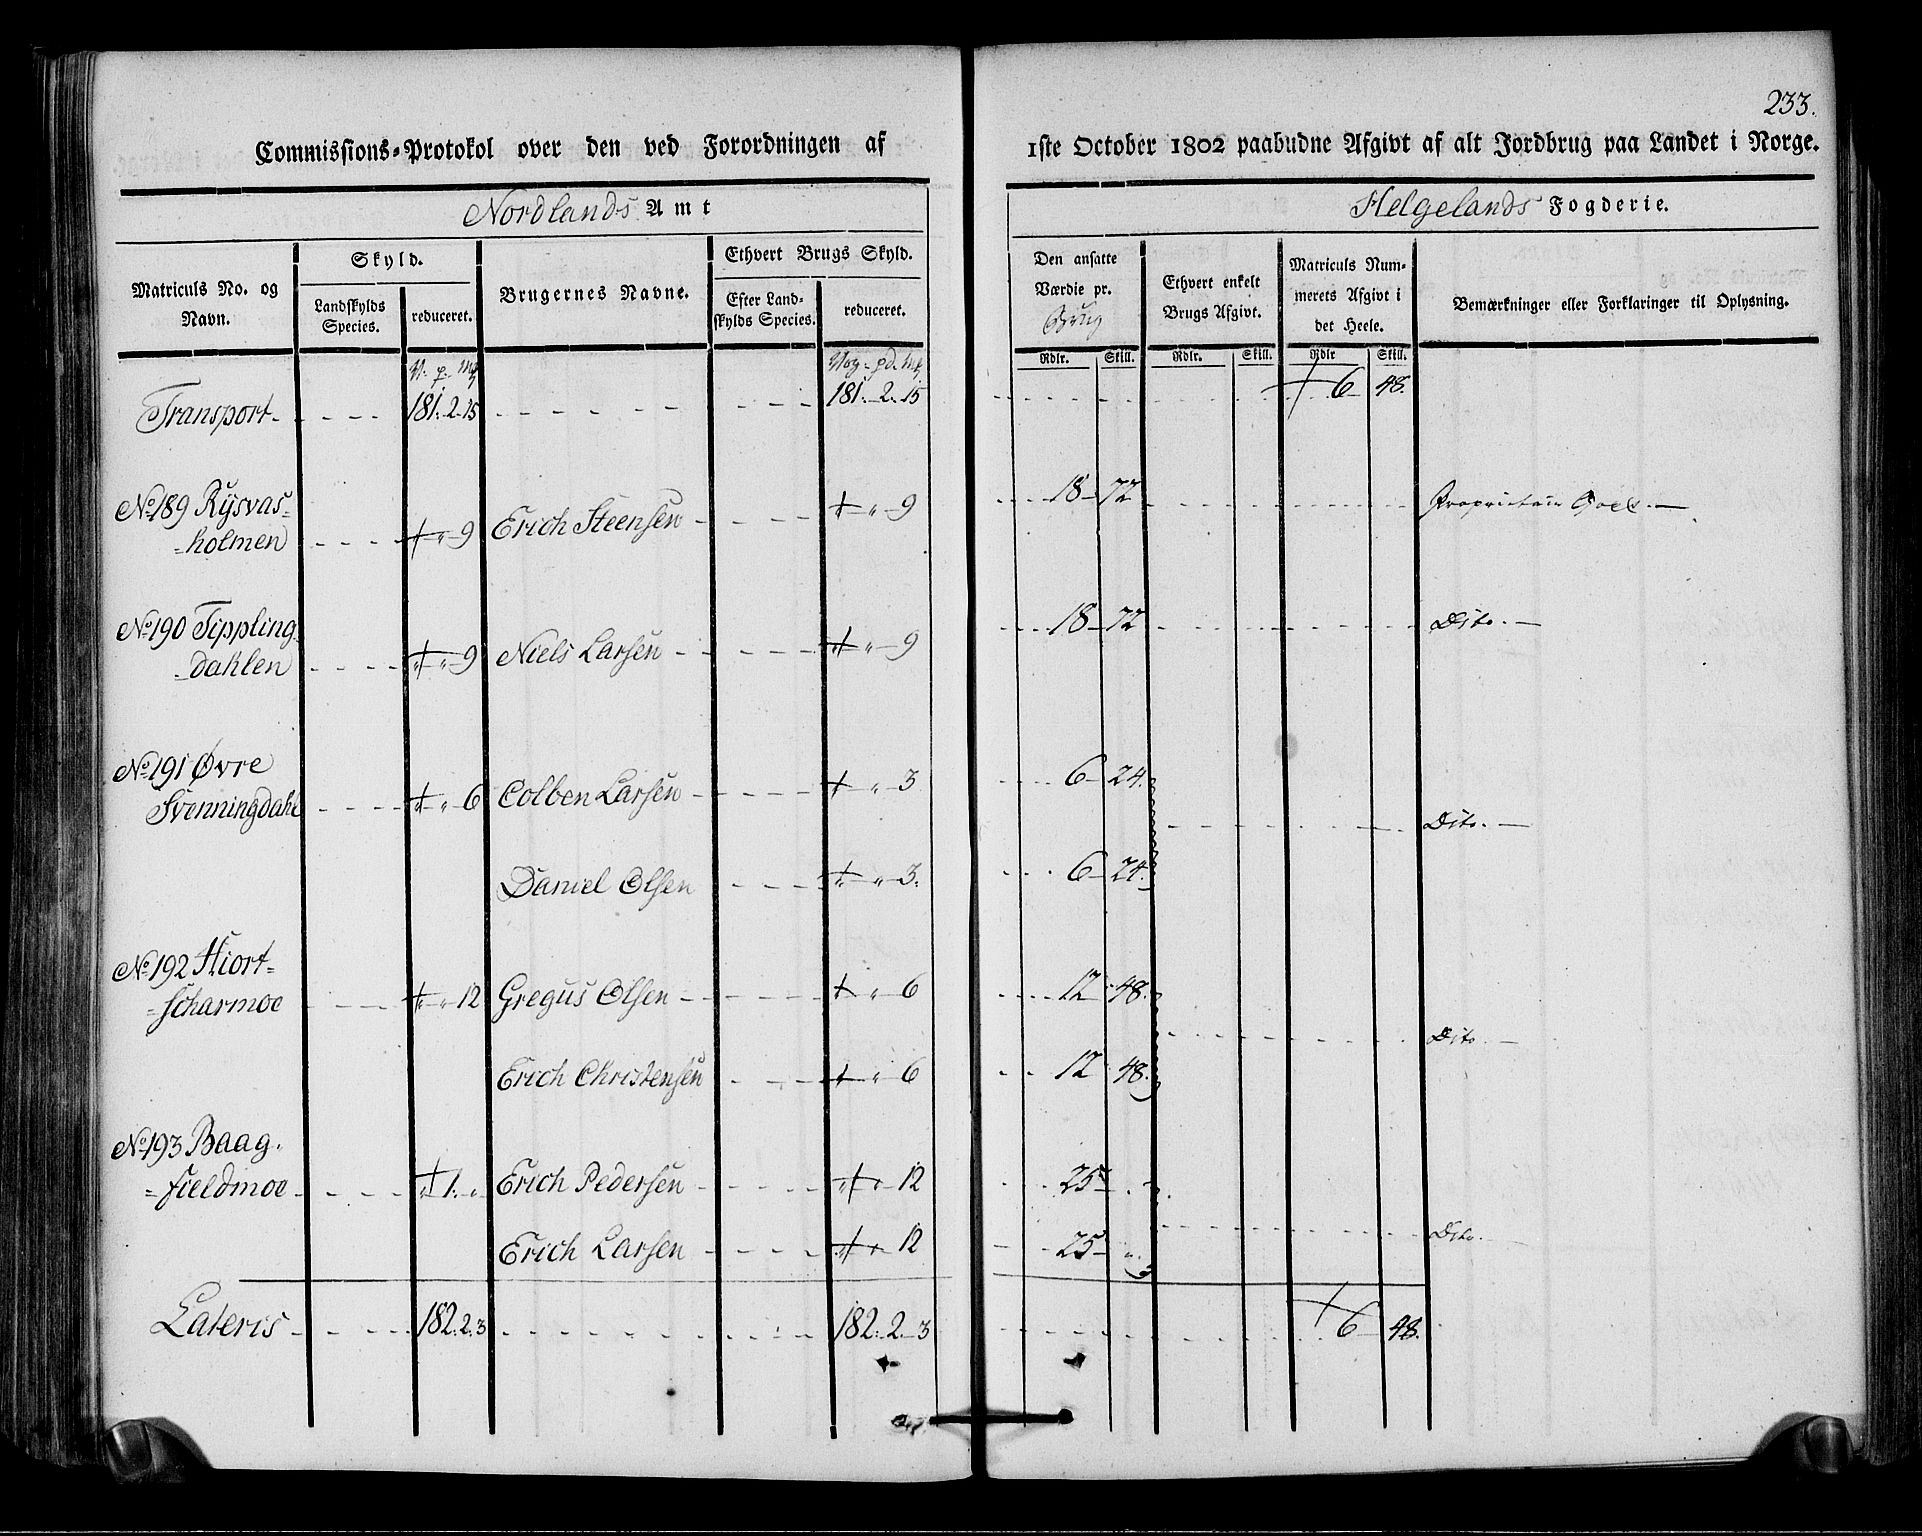 233.
Commissions-Protokol over den ved Forordningen af 1ste October 1802 paabudne Afgivt af alt Jordbrug paa Landet i Norge.
Nordlands Amt
Helgelands Fogderie.
Matriculs No. og Navn.
Skyld.
Landskylds Species.
reduceret.
Brugernes Navne.
Ethvert Brugs Skyld.
Efter Landskylds Species.
reduceret.
Den ansatte Værdie pr. Brug
Ethvert enkelt Brugs Afgivt.
Matriculs Nummerets Afgivt i det Heele.
Bemærkninger eller Forklaringer til Oplysning.
Rdlr. Skill. Rdlr. Skill. Rdlr Skill.
V. p. Mk
Vog. pd. Mk
Transport 181. 2. 15 181. 2. 15 6 48.
No 189 Rÿsvas-
-holmen " 9 Erich Steensen " 9 18 72 Proprietair Coel.
No 190 Tippling-
-dahlen " " 9 Niels Larsen " " 9 18 72 Dito.
No 191 Øvre
Svenningdahl " " 6 Colben Larsen " 3 6 24.
Dito.
Daniel Olsen " " 3. 6 24.
No 192 Hiort-
-skarmoe " " 12 Gregus Olsen " 6 12 48.
Dito.
Erich Christensen " " 6 12 48.
No 193 Baag-
-fieldmoe " 1. " Erich Pedersen " " 12 25
Dito.
Erich Larsen " " 12 25 "
Lateris 182. 2. 3 182. 2. 3 6 48.